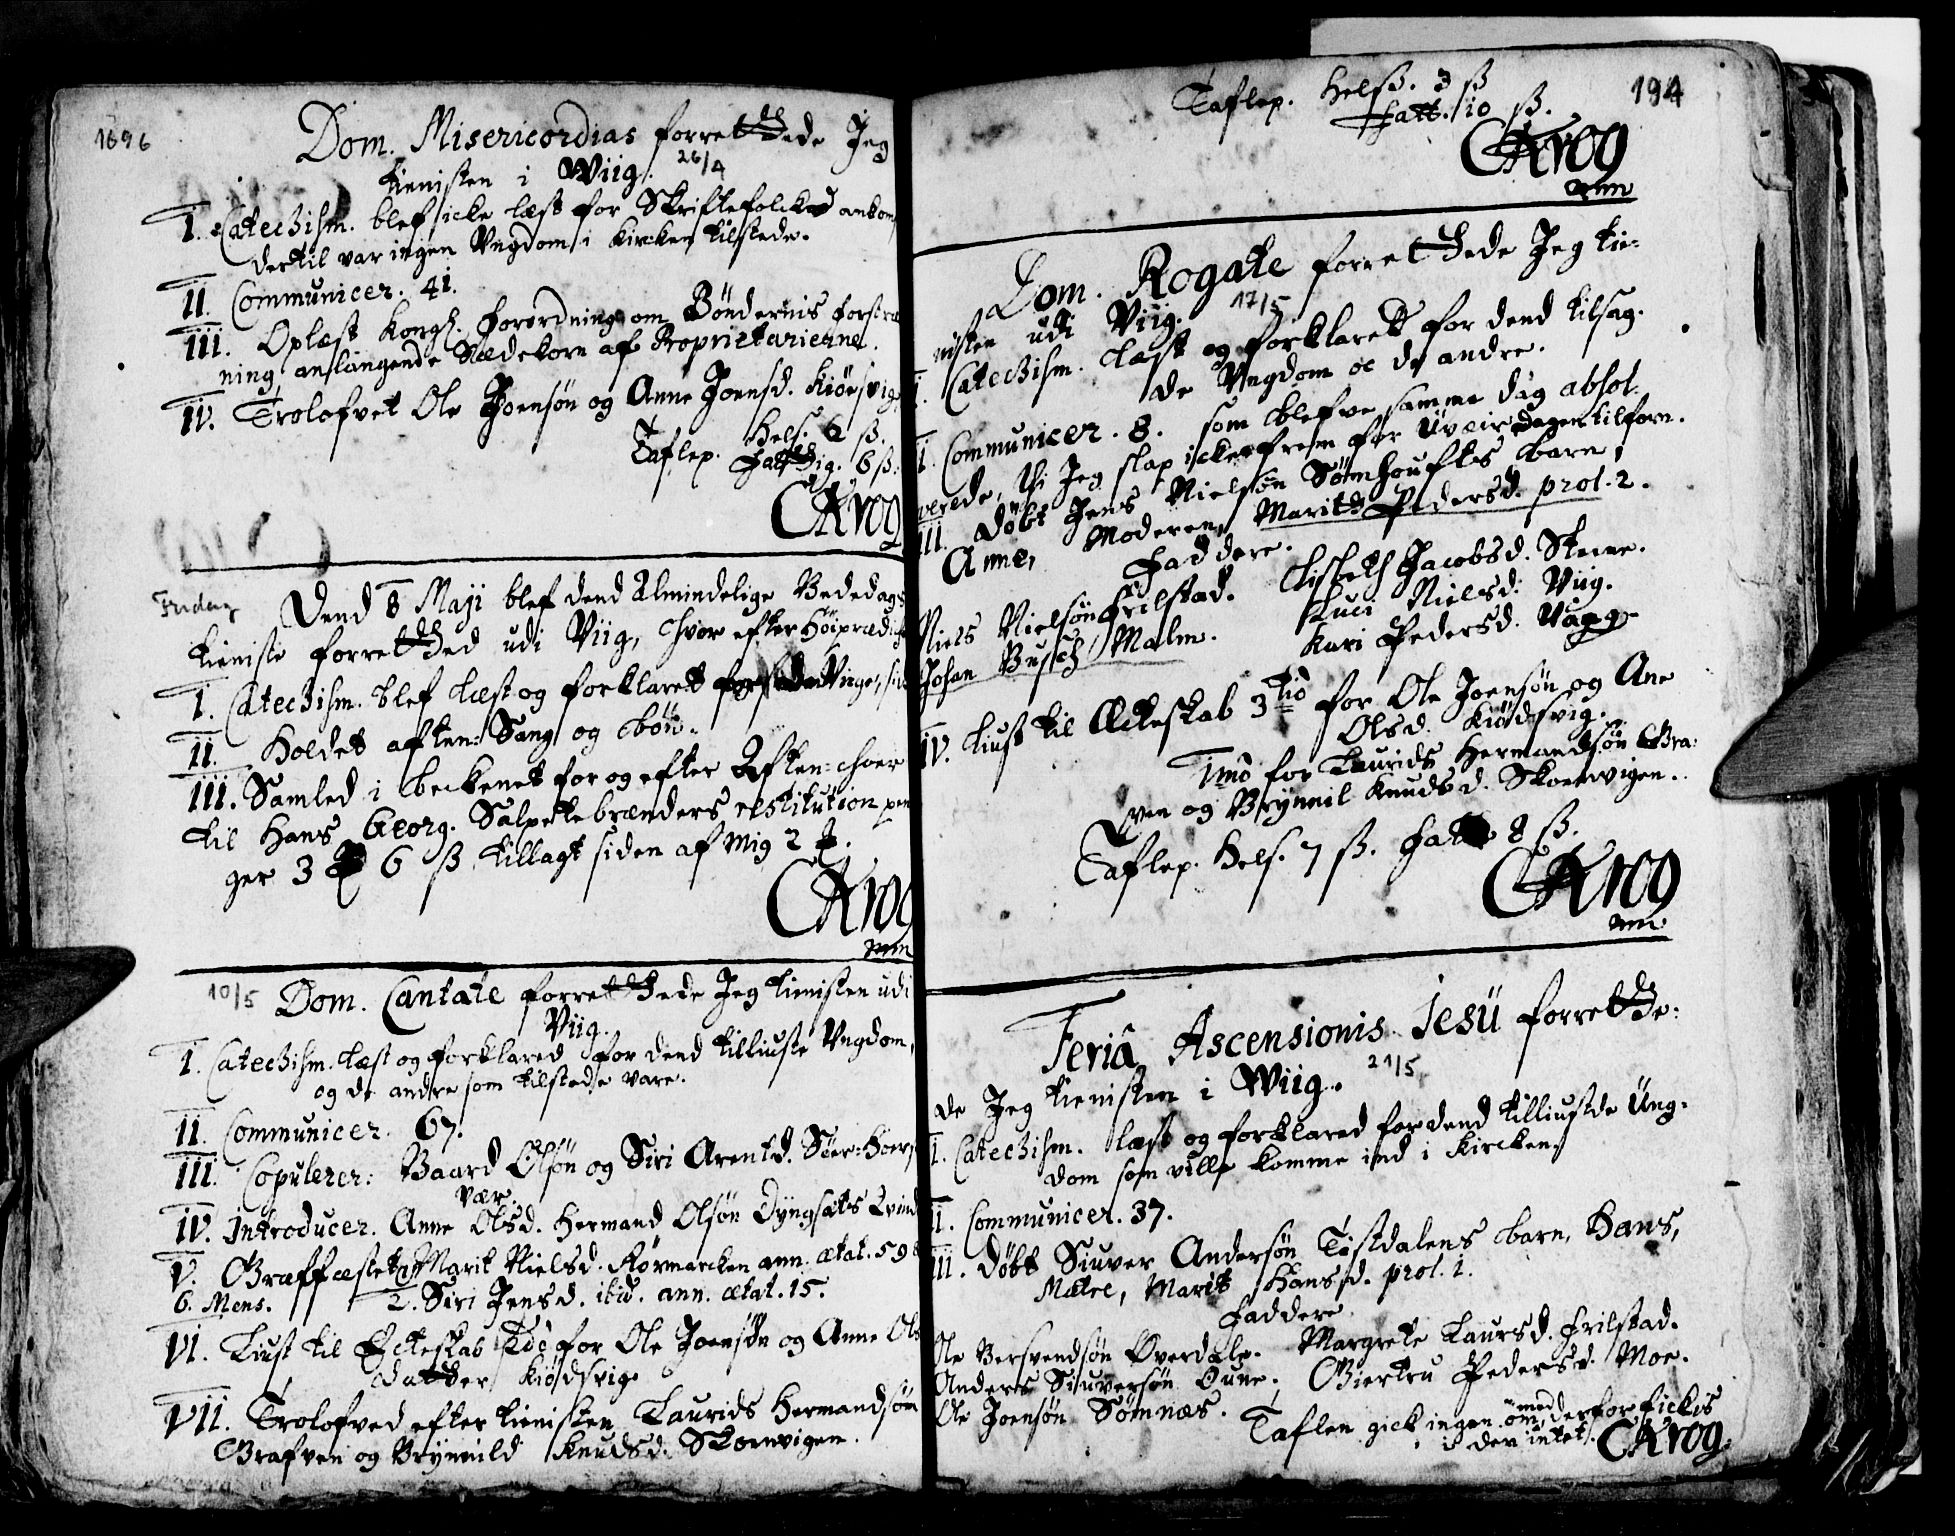 1696
Dom. Misericordias forrettede Jeg
tienisten i Wiig. 26/4
I. Catechism. blef icke læst for Skriftefolcked ankom
dertil var ingen Ungdom i Kircken tilstede.
II. Communicer. 41.
III. Oplæst Kongl. forordning om Bøndernis forstræ
ning anlangende Sædekorn af Proprietarierne.
IV. Trolofvet Ole Joensøn og Anne Joensd. Kiørsvig.
Taflep. Hels. 2 ß.
Fattig. 6 ß.
CKrog
Fridag
Dend 8 Maji blef dend Almindelige Bededags
tieniste forretted udi Viig, hvor efter Høiprædic
I. Catechism. blef læst og forklaret for de Unge, sid
II. Holdet aften: Sang og bøn.
III. Samled i beckenet for og efter Aften: hver
til Hans Georg. Salpetebrænders restitution pen
ger 3 6 ß tillagt siden af mig 2
CKrog
mm
10/5 Dom. Cantate forrettede Jeg tienisten udi
Viig.
I. Catechism. læst og forklared for dend tilliuste Ungdom,
og de andre som tilstede vare.
II. Communicer. 67.
III. Copulerer: Baard Olsøn og Siri Arentd. Søer: Hoers
vær.
IV. Introducer. Anne Olsd. Hermand Olsøn Dyngsæts Qvind
V. Græffæstet 1 Marit Nielsd. Rørmarcken ann. ætat. 59
6. Mens. 2. Siri Jensd. ibid. ann. ætat. 15.
VI. Liust til Ecteskab 2do for Ole Joensøn og Anne Ols
datter Kiødsvig.
VII. Trolofved efter tienisten Laurids Hermandsøn
Grafven og Brynnild Knudsd. Skoervigen.
194
Taflep. Hels. 3 ß
Fatt. 10 ß.
CKrog
mm
Dom. Rogate forrettede Jeg tie-
nisten udi Viig. 17/5
I. Catechism. læst og forklaret for dend tilsag.
de Ungdom oc de andre.
II. Communicer. 8. som blefve samme dag absol.
verede, thi Jeg slap icke frem for Uveir dagen tilforn.
III. Døbt Jens Nielsøn Sømhoufts barn,
Anne, Moderen Marit Pedersd. prol. 2.
Faddere.
Niels Nielsøn Frilstad. Lisbeth Jacobsd. Steine.
Johan Busch Malm. Luci Nielsd. Viig.
Kari Pedersd. Vagg.
IV. Liust til Ecteskab 3tio for Ole Joensøn og Ane
Olsd. Kiødsvig.
1mo for Laurids Hermandsøn Gra:
ven og Brynnil Knudsd. Skoervigen.
Taflep. Hels. 7 ß. Fatt. 8 ß.
CKrog
mm
Feria Ascensionis Jesu forrette:
de Jeg tienisten i Wiig. 21/5
I. Catechism. læst og forklared for dend tilliuste Ung-
dom som ville komme ind i Kircken
II. Communicer. 37.
III. Døbt Siuver Andersøn Tistdalens barn, Hans,
Mater, Marit Hansd. prol. 1.
Faddere
Ole Bersvendsøn Øverdale. Margrete Laursd. Frilstad.
Anders Siuversøn Oune. Giertru Pedersd. Moe.
Ole Joensøn Sømnæs.
Taflen gick ingen om med, derfor fickis
i den intet. CKrog.